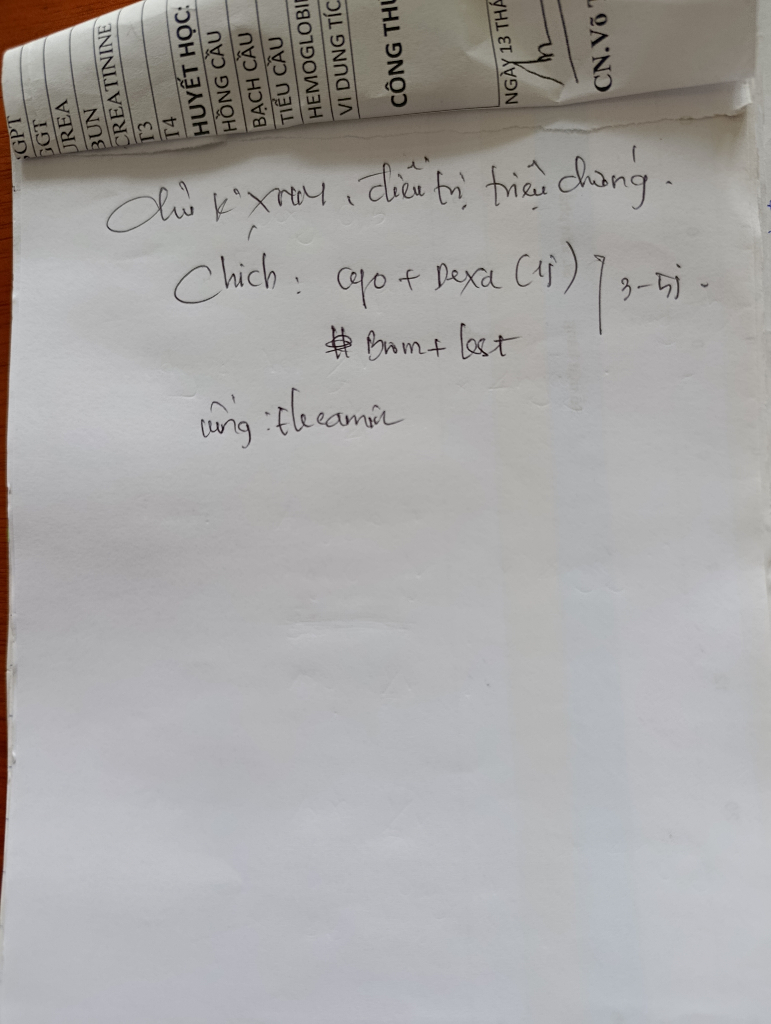 GPT
GGT
UREA
BUN
CREATININE
T3
T4
HUYẾT HỌC:
HỒNG CẦU
BẠCH CẦU
TIỂU CẦU
HEMOGLOBI
VI DUNG TÍC
CÔNG THỨ
NGÀY 13 THÁ
CN.Võ T
Chủ k, điều trị triệu chứng.
Chích: + Dexa (1j) 3-5j.
Brom + lest
uống: